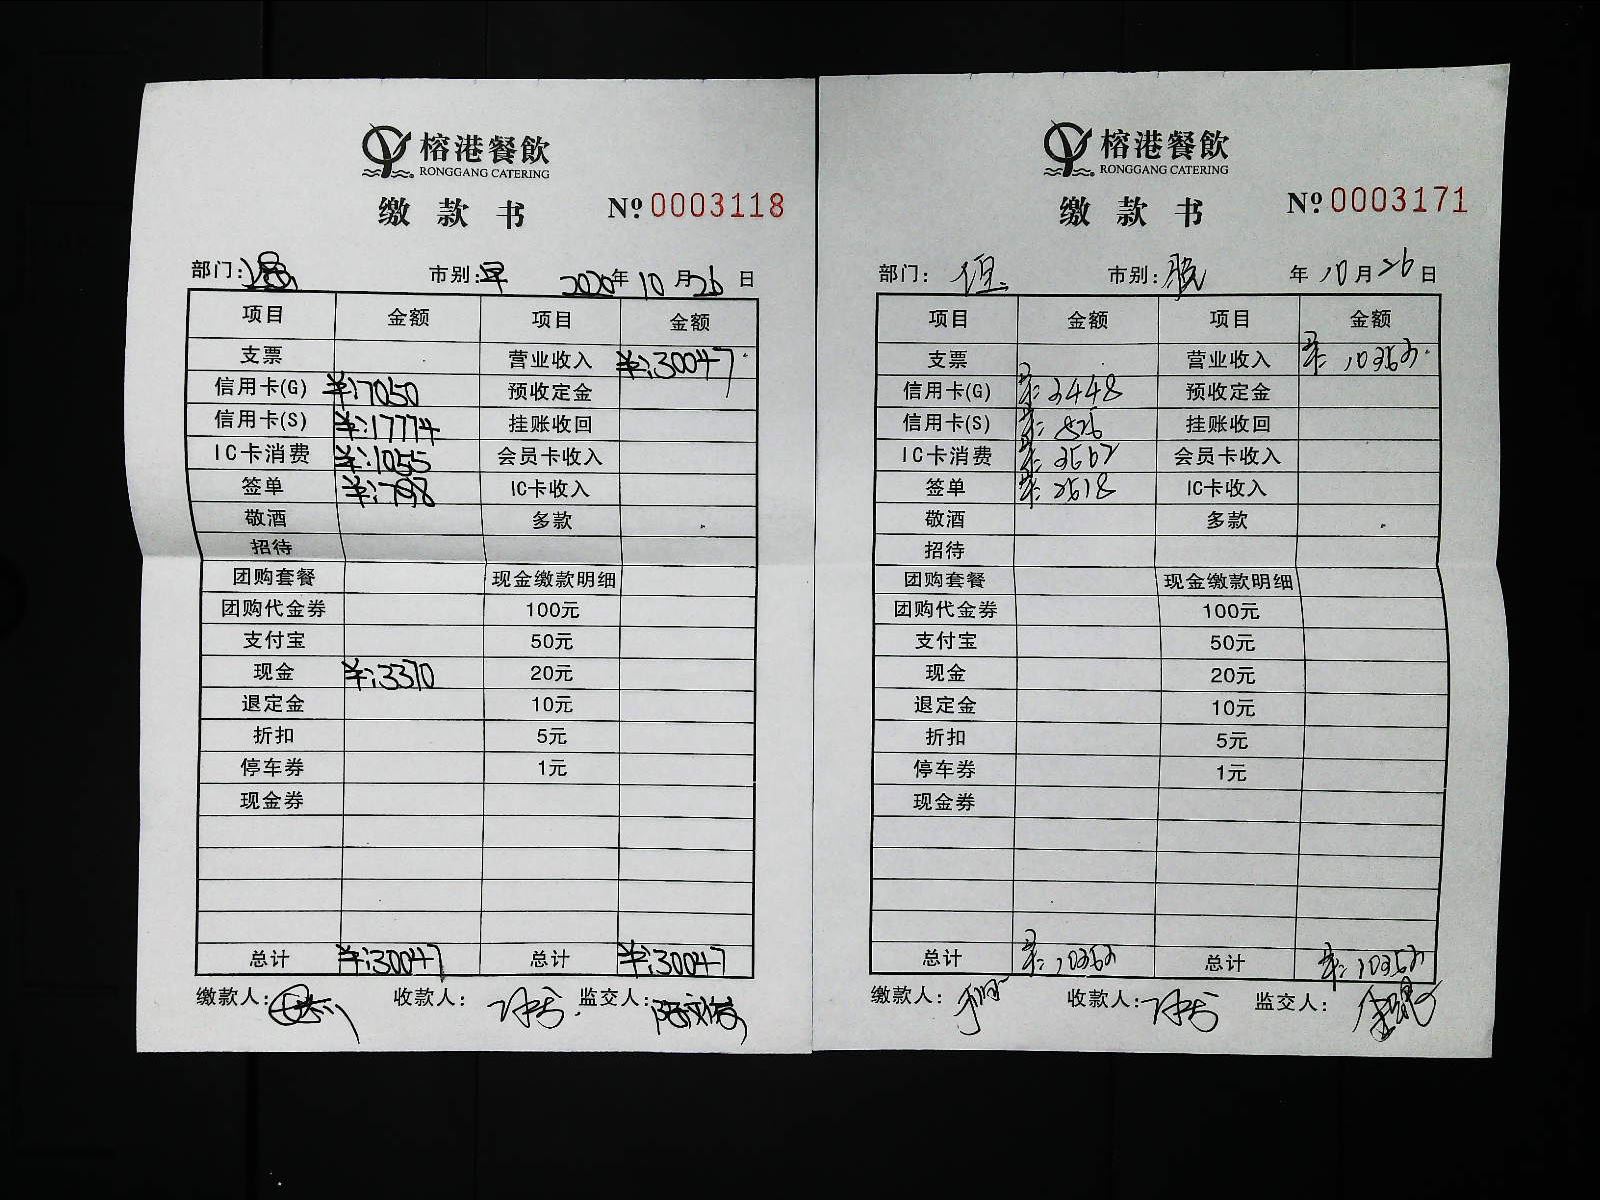 榕港餐飲
RONGGANG CATERING
缴款书 № 0003118
部门: 市别:早 2020年10月26日
项目 金额 项目 金额
支票 营业收入 ¥:30047
信用卡(G) ¥:7050 预收定金
信用卡(S) ¥:17774 挂账收回
IC卡消费 ¥:1055 会员卡收入
签单 ¥:798 IC卡收入
敬酒 多款
招待
团购套餐 现金缴款明细
团购代金券 100元
支付宝 50元
现金 ¥:3370 20元
退定金 10元
折扣 5元
停车券 1元
现金券
总计 ¥:30047 总计 ¥:30047
缴款人: 收款人: 监交人:
榕港餐飲
RONGGANG CATERING
缴款书 № 0003171
部门: 市别: 年10月26日
项目 金额 项目 金额
支票 营业收入
信用卡(G) 预收定金
信用卡(S) 挂账收回
IC卡消费 会员卡收入
签单 IC卡收入
敬酒 多款
招待
团购套餐 现金缴款明细
团购代金券 100元
支付宝 50元
现金 20元
退定金 10元
折扣 5元
停车券 1元
现金券
总计 总计
缴款人: 收款人: 监交人: